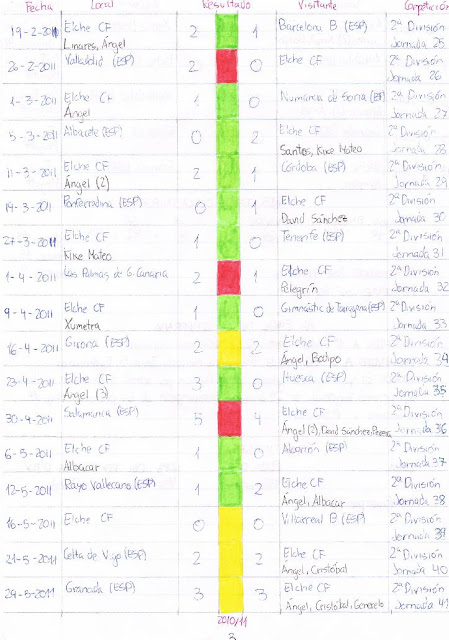 Fecha Local Resultado Visitante Competición
19-2-2011 Elche CF 2 1 Barcelona B (ESP) 2ª División
Linares, Ángel Jornada 25
26-2-2011 Valladolid (ESP) 2 0 Elche CF 2ª División
Jornada 26
1-3-2011 Elche CF 1 0 Numancia de Soria (ESP) 2ª División
Ángel Jornada 27
5-3-2011 Albacete (ESP) 0 2 Elche CF 2ª División
Santos, Kike Mateo Jornada 28
11-3-2011 Elche CF 2 1 Córdoba (ESP) 2ª División
Ángel (2) Jornada 29
19-3-2011 Ponferradina (ESP) 0 1 Elche CF 2ª División
David Sánchez Jornada 30
27-3-2011 Elche CF 1 0 Tenerife (ESP) 2ª División
Kike Mateo Jornada 31
1-4-2011 Las Palmas de G. Canaria 2 1 Elche CF 2ª División
Pelegrín Jornada 32
9-4-2011 Elche CF 1 0 Gimnàstic de Tarragona (ESP) 2ª División
Xumetra Jornada 33
16-4-2011 Girona (ESP) 2 2 Elche CF 2ª División
Ángel, Bodipo Jornada 34
23-4-2011 Elche CF 3 0 Huesca (ESP) 2ª División
Ángel (3) Jornada 35
30-4-2011 Salamanca (ESP) 5 4 Elche CF 2ª División
Ángel (2), David Sánchez, Jornada 36
6-5-2011 Elche CF 1 0 Alcorcón (ESP) 2ª División
Albacar Jornada 37
12-5-2011 Rayo Vallecano (ESP) 1 2 Elche CF 2ª División
Ángel, Albacar Jornada 38
16-5-2011 Elche CF 0 0 Villarreal B (ESP) 2ª División
Jornada 39
21-5-2011 Celta de Vigo (ESP) 2 2 Elche CF 2ª División
Ángel, Cristóbal Jornada 40
29-5-2011 Granada (ESP) 3 3 Elche CF 2ª División
Ángel, Cristóbal, Generelo Jornada 41
2010/11
3